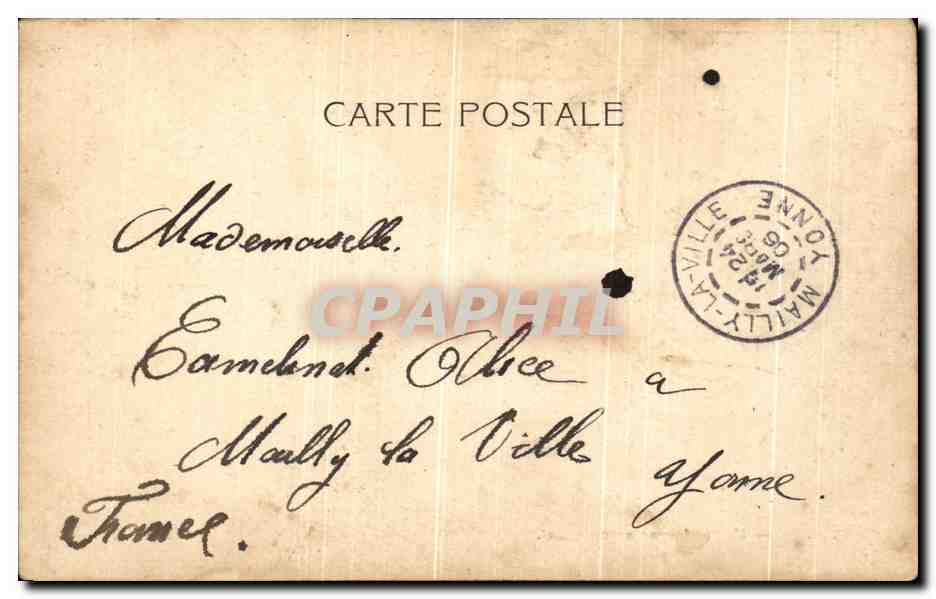 CARTE POSTALE
Mademoiselle.
Camelinat. Alice a
Mailly la Ville Yonne.
France.
MAILLY-LA-VILLE YONNE
24
MARS
06
CPAPHIL